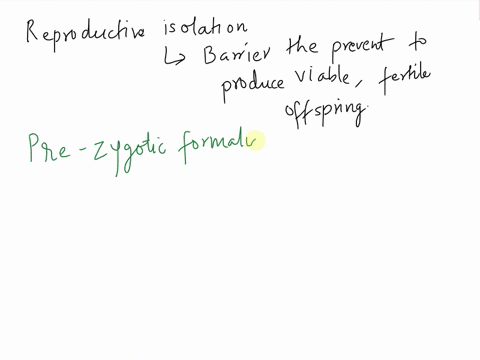 Reproductive isolation
↳ Barrier the prevent to
produce viable, fertile
offspring.
Pre-zygotic